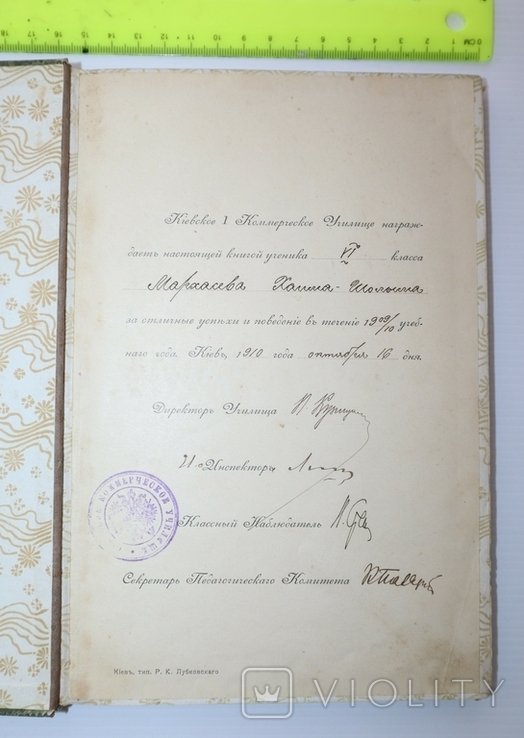 Кіевское 1 Коммерческое Училище награж-
даетъ настоящей книгой ученика VI класса
Мархасева Хаима-Шоломa
за отличные успѣхи и поведеніе въ теченіе 1909/10 учеб-
наго года. Кіевъ, 1910 года октября 16 дня.
Директоръ Училища
И. о. Инспектора
Классный Наблюдатель
Секретарь Педагогическаго Комитета
КОММЕРЧЕСКОЕ УЧИЛИЩЕ
Кіевъ, тип. Р. К. Лубковскаго
VIOLITY